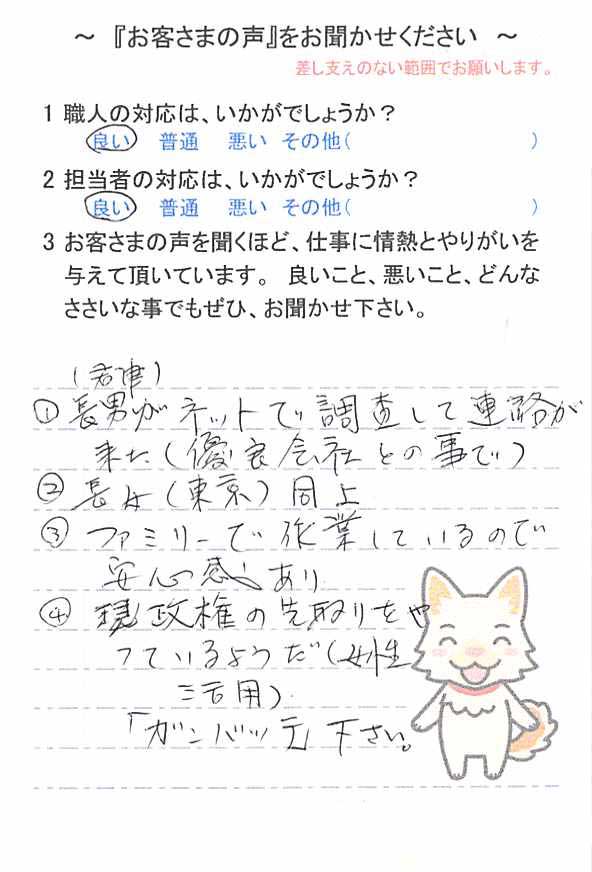 ～ 『お客さまの声』をお聞かせください ～
差し支えのない範囲でお願いします。
1 職人の対応は、いかがでしょうか？
良い 普通 悪い その他( )
2 担当者の対応は、いかがでしょうか？
良い 普通 悪い その他( )
3 お客さまの声を聞くほど、仕事に情熱とやりがいを
与えて頂いています。 良いこと、悪いこと、どんな
ささいな事でもぜひ、お聞かせ下さい。
(君津)
① 長男がネットで調査して連絡が
来た(優良会社との事で)
② 長女(東京)同上
③ ファミリーで作業しているので
安心感あり
④ 現政権の先取りをや
っているようだ(女性
活用)
「ガンバッテ」下さい。